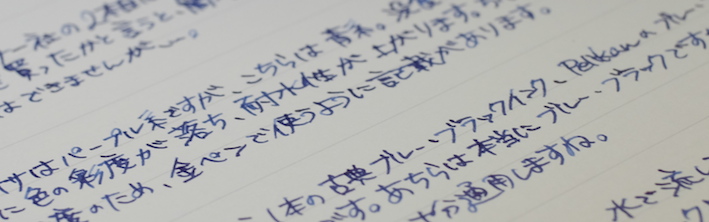 社の2本目
買ったかと言うと
はできませんが〜。
はパープル系ですが、こちらは青系。
に色の彩度が落ち、耐水性が上がります。
度のため、金ペンで使うように記載があります。
本の古典ブルーブラックインク、Pelikanのブルー
です。あちらは本当にブルーブラックですが
通用しますね。
水で流し